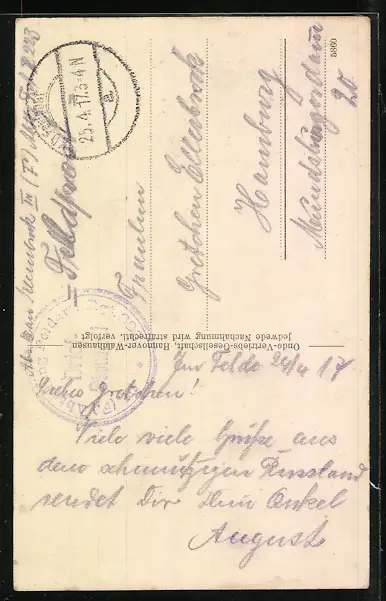 Feldpost
25.4.17.3-4N
a.
Fräulein
Gretchen Ellerbrock
Hamburg
Mundsburgerdamm
20
5860
Ondo-Vertriebs-Gesellschaft, Hannover-Waldhausen
jedwede Nachahmung wird strafrechtl. verfolgt
Im Felde 24/4 17
Liebes Gretchen!
Viele viele Grüße aus
dem schmutzigen Russland
sendet Dir Dein Onkel
August